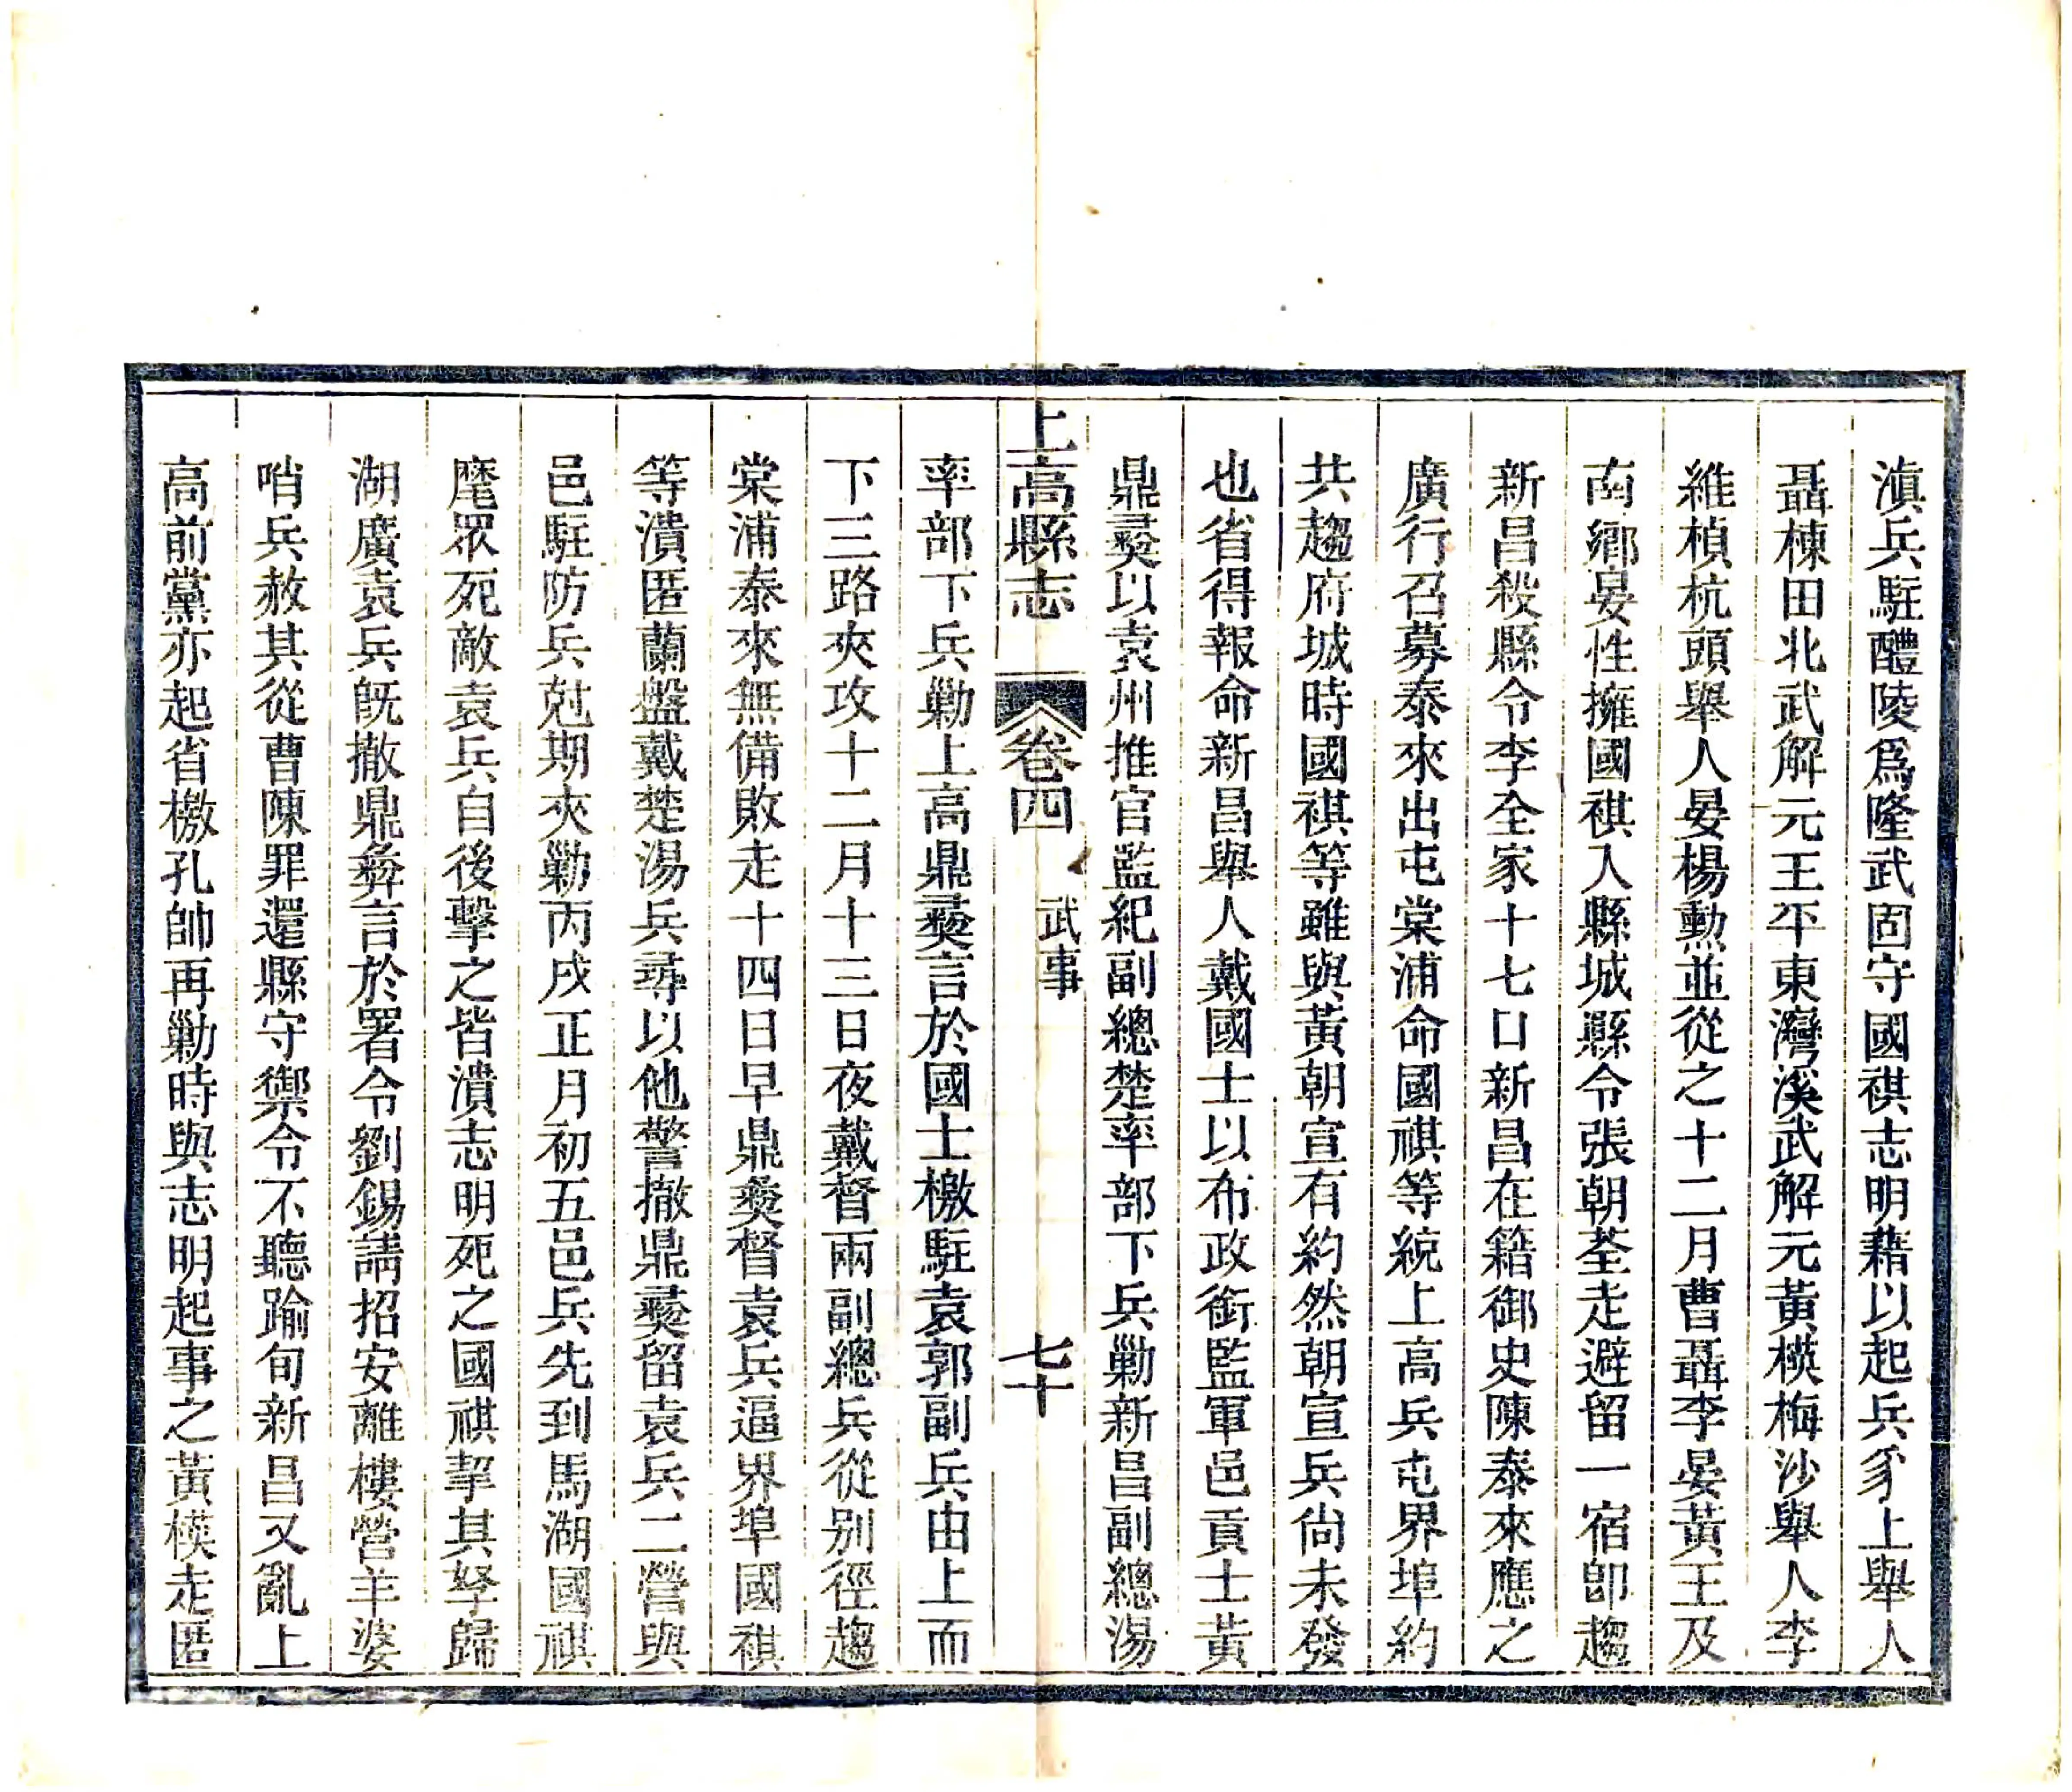 滇兵駐醴陵爲隆武固守國祺志明藉以起兵豸上舉人
聶棟田北武解元王平東灣溪武解元黃模梅沙舉人李
維楨杭頭舉人晏楊勳並從之十二月曹聶李晏黃王及
南鄉晏性擁國祺入縣城縣令張朝荃走避留一宿卽趨
新昌殺縣令李全家十七口新昌在籍御史陳泰來應之
廣行召募泰來出屯棠浦命國祺等統上高兵屯界埠約
共趨府城時國祺等雖與黃朝宣有約然朝宣兵尙未發
也省得報命新昌舉人戴國士以布政銜監軍邑貢士黃
鼎彛以袁州推官監紀副總楚率部下兵勦新昌副總湯
上高縣志 卷四 武事 七十
率部下兵勦上高鼎彛言於國士檄駐袁郭副兵由上而
下三路夾攻十二月十三日夜戴督兩副總兵從別徑趨
棠浦泰來無備敗走十四日早鼎彛督袁兵逼界埠國祺
等潰匿蘭盤戴楚湯兵尋以他警撤鼎彛留袁兵二營與
邑駐防兵尅期夾勦丙戌正月初五邑兵先到馬湖國祺
麾眾死敵袁兵自後擊之皆潰志明死之國祺挈其孥歸
湖廣袁兵旣撤鼎彝言於署令劉錫請招安離樓營羊婆
哨兵赦其從曹陳罪還縣守禦令不聽踰旬新昌又亂上
高前黨亦起省檄孔帥再勦時與志明起事之黃模走匿